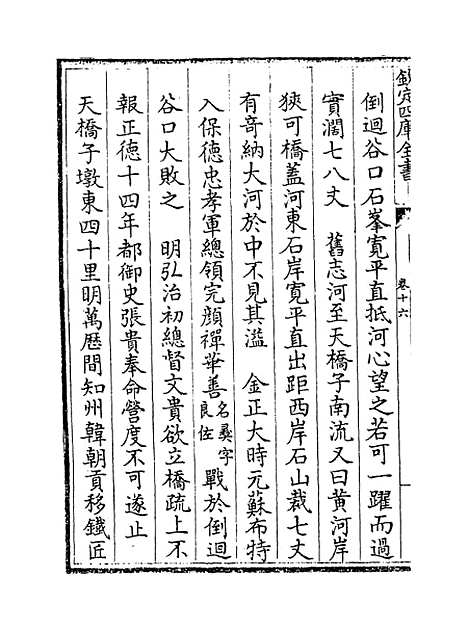 欽定四庫全書
卷十六
倒迴谷口石峯寛平直抵河心望之若可一躍而過
實濶七八丈　舊志河至天橋子南流又曰黄河岸
狹可橋蓋河東石岸寛平直出距西岸石山裁七丈
有竒納大河於中不見其溢　金正大時元蘇布特
入保德忠孝軍總領完顔禪華善名彞字良佐戰於倒迴
谷口大敗之　明弘治初總督文貴欲立橋疏上不
報正德十四年都御史張貴奉命營度不可遂止
天橋子墩東四十里明萬厯間知州韓朝貢移鐵匠